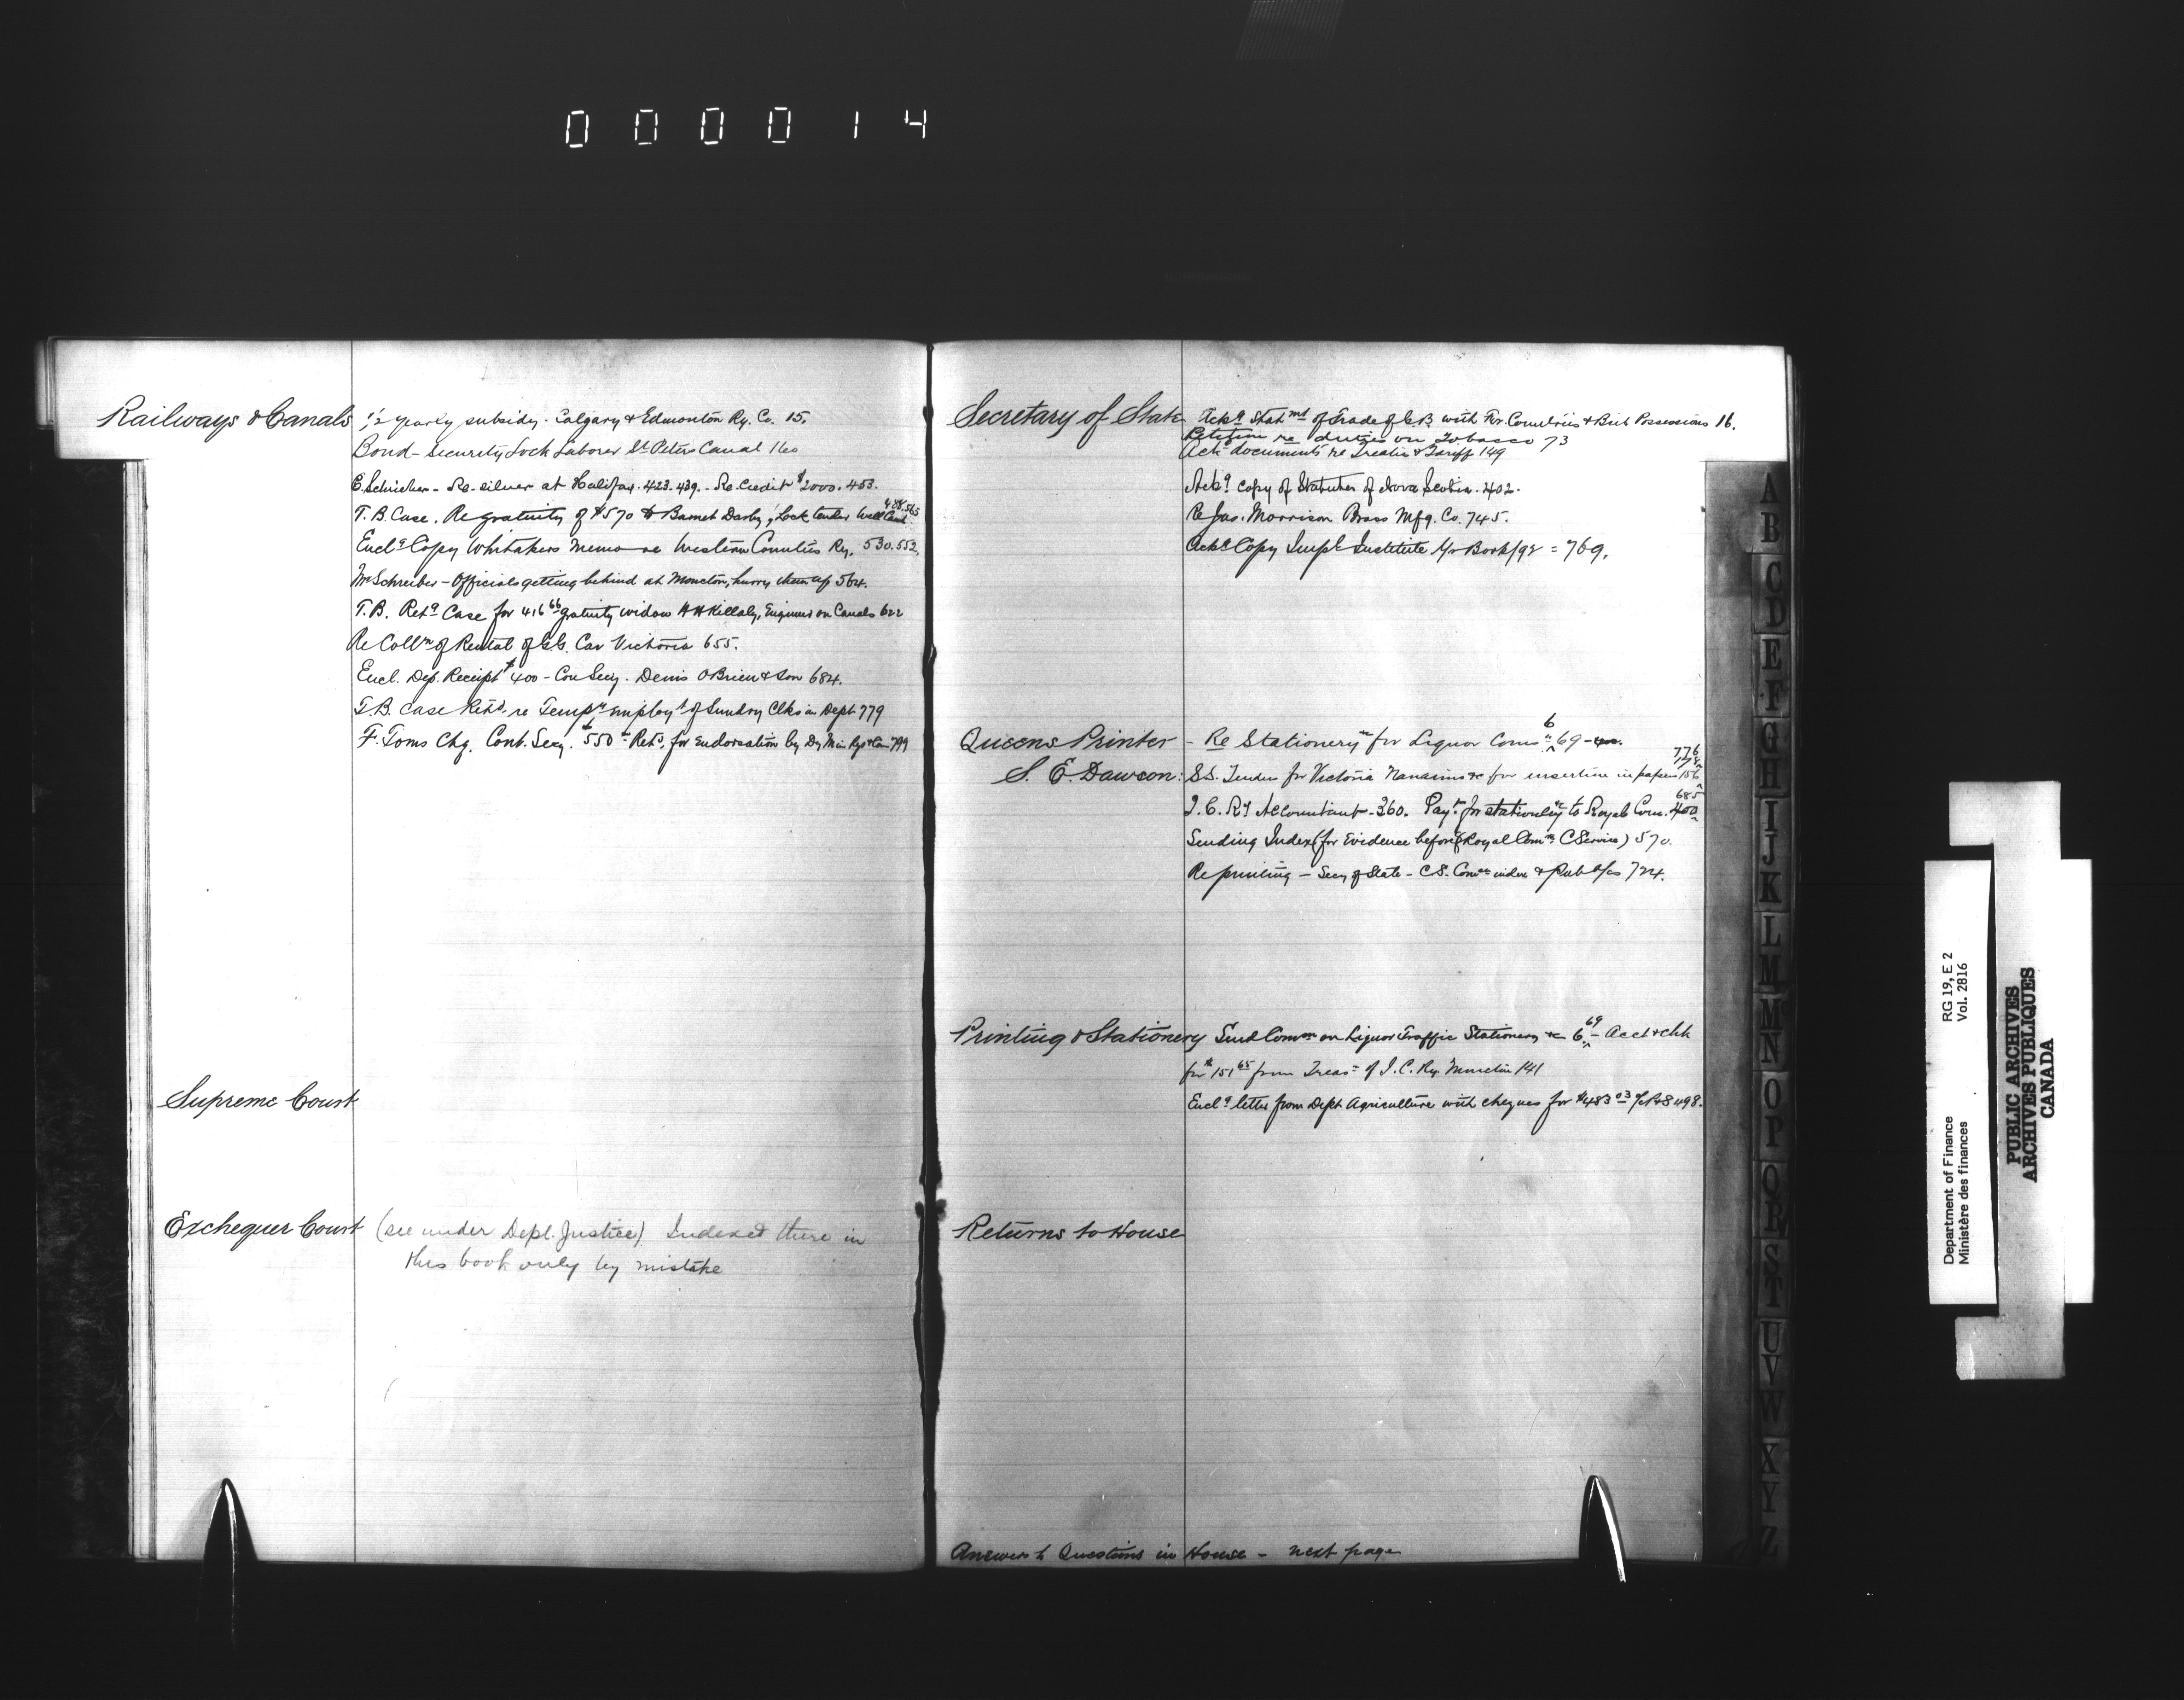 000014
Railways & Canals
1/2 yearly subsidy. Calgary & Edmonton Ry. Co. 15.
Bond - Security Lock Laborer St. Peters Canal 160
C. Schrieber - Re silver at Halifax. 423. 439. - Re Credit $2000. 453.
T. B. Case. Re gratuity of $570 to Barnet Darby, Lock tender Well Canl. 488.565
Enclg Copy Whitakers Memo re Western Counties Ry. 530. 552.
Mr Schreiber - Officials getting behind at Moncton, hurry them up 564.
T. B. Retg Case for 416 66 gratuity widow H H Killaly, Engineer on Canals 622
Re Colln of Rental of G.G. Car Victoria 655.
Encl. Dep. Receipt $400 - Con Secy. Denis O'Brien & Son 684.
T. B. Case Retd. re Tempy employt of Sundry Clks in Dept. 779
F. Toms Chq. Cont. Secy. $550 - Retg. for Endorsation by Dy Min Rys & Can 799
Supreme Court
Exchequer Court (see under Dept. Justice) Indexed there in
this book only by mistake
Secretary of State
Ackg Statmt of Trade of G B with For. Countries & Brit Possessions 16.
Petition re duties on Tobacco 73
Ackg documents re Treaties & Tariff 149
Ackg copy of Statutes of Nova Scotia. 402.
Re Jas. Morrison Brass Mfg. Co. 745.
Ackg Copy Impl Institute Yr Book/92 = 769.
Queens Printer - Re Stationery for Liquor Comn 6 69
S. E. Dawson: S.S. Tender for Victoria Nanaimo &c for insertion in papers 156 776
I. C. Ry Accountant. 360. Payt. for stationery &c to Royal Com. 400 685
Sending Index (for Evidence before Royal Comn C Service) 570.
Re printing - Secy of State - C.S. Comn index & Pub a/cs 724.
Printing & Stationery Send Comn on Liquor Traffic Stationery &c 6 69 - Acct & chk
for $151 65 from Treas. of I. C. Ry. Moncton 141
Enclg letter from Dept Agriculture with cheques for $483 03 498.
Returns to House
Answers to Questions in House - next page
A
B
C
D
E
F
G
H
I
J
K
L
M
Mc
N
O
P
Q
R
S
T
U
V
W
X
Y
Z
RG 19, E 2
Vol. 2816
Department of Finance
Ministère des finances
PUBLIC ARCHIVES
ARCHIVES PUBLIQUES
CANADA